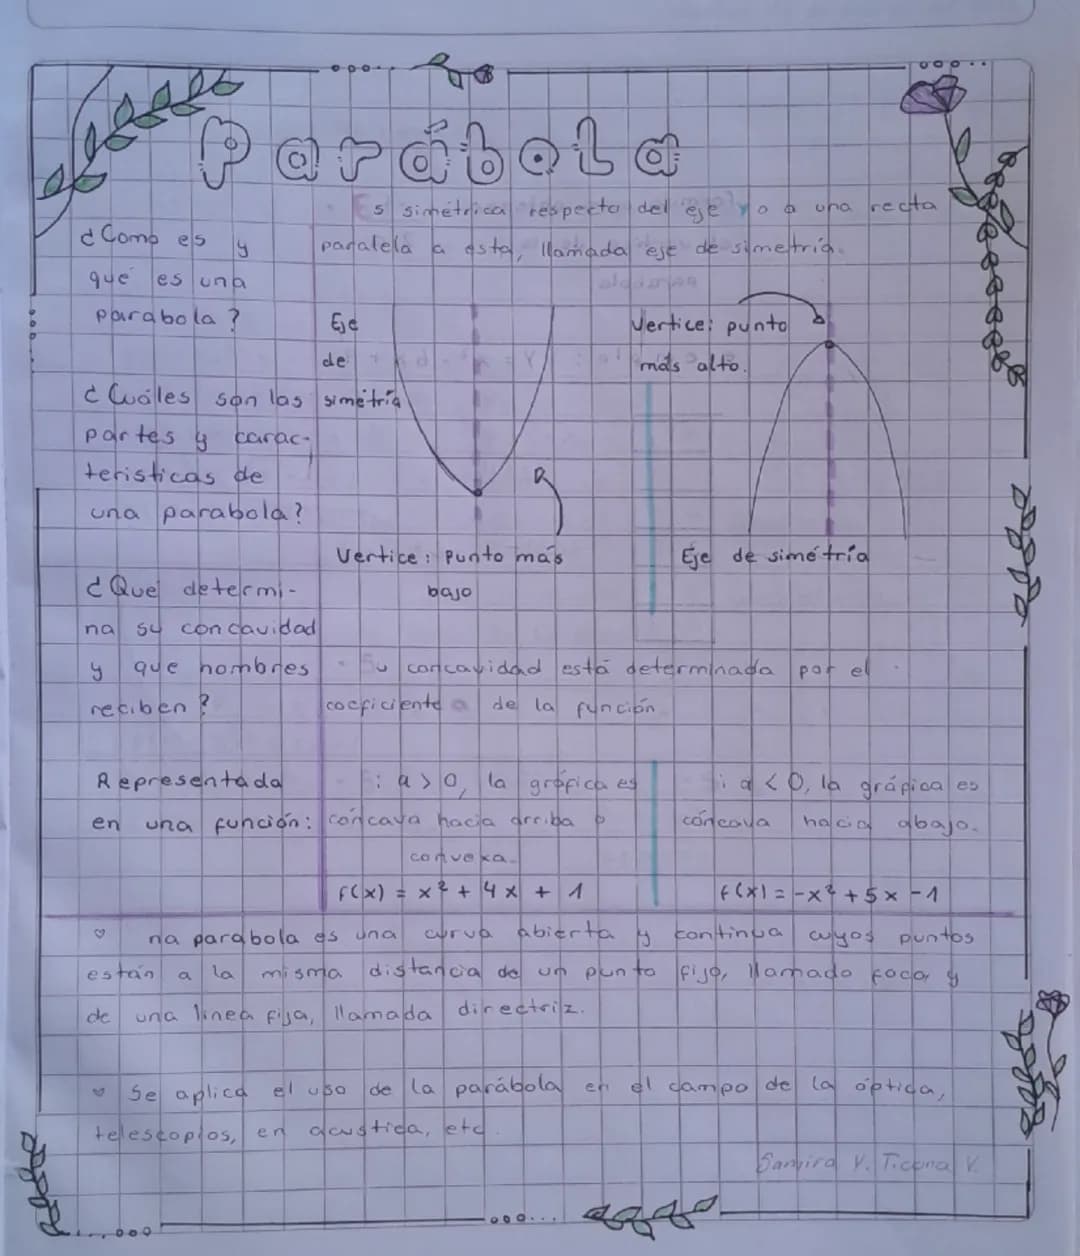 Parábola
¿Como es y
qué es una
parabola?
¿Cuáles son las
partes y carac-
teristicas de
una parabola?
¿Que determi-
na su concavidad
y que nombres
reciben?
Representada
en una función:
Es simétrica respecto del eje y o a una recta
paralela a esta, llamada eje de simetría.
Eje
de
simetría
Vertice: punto más
bajo
Vertice: punto
más alto.
Eje de simétría
Su concavidad está determinada por el
coeficiente a de la función
: a > 0, la gráfica es
cóncava hacia arriba o
convexa.
f(x) = x² + 4x + 1
i a < 0, la gráfica es
cóncava hacia abajo.
f(x) = -x² + 5x - 1
na parabola es una curva abierta y continua cuyos puntos
están a la misma distancia de un punto fijo, llamado foco, y
de una linea fija, llamada directriz.
Se aplica el uso de la parábola en el campo de la óptica,
telescopios, en acustica, etc.
Samira V. Ticona V.